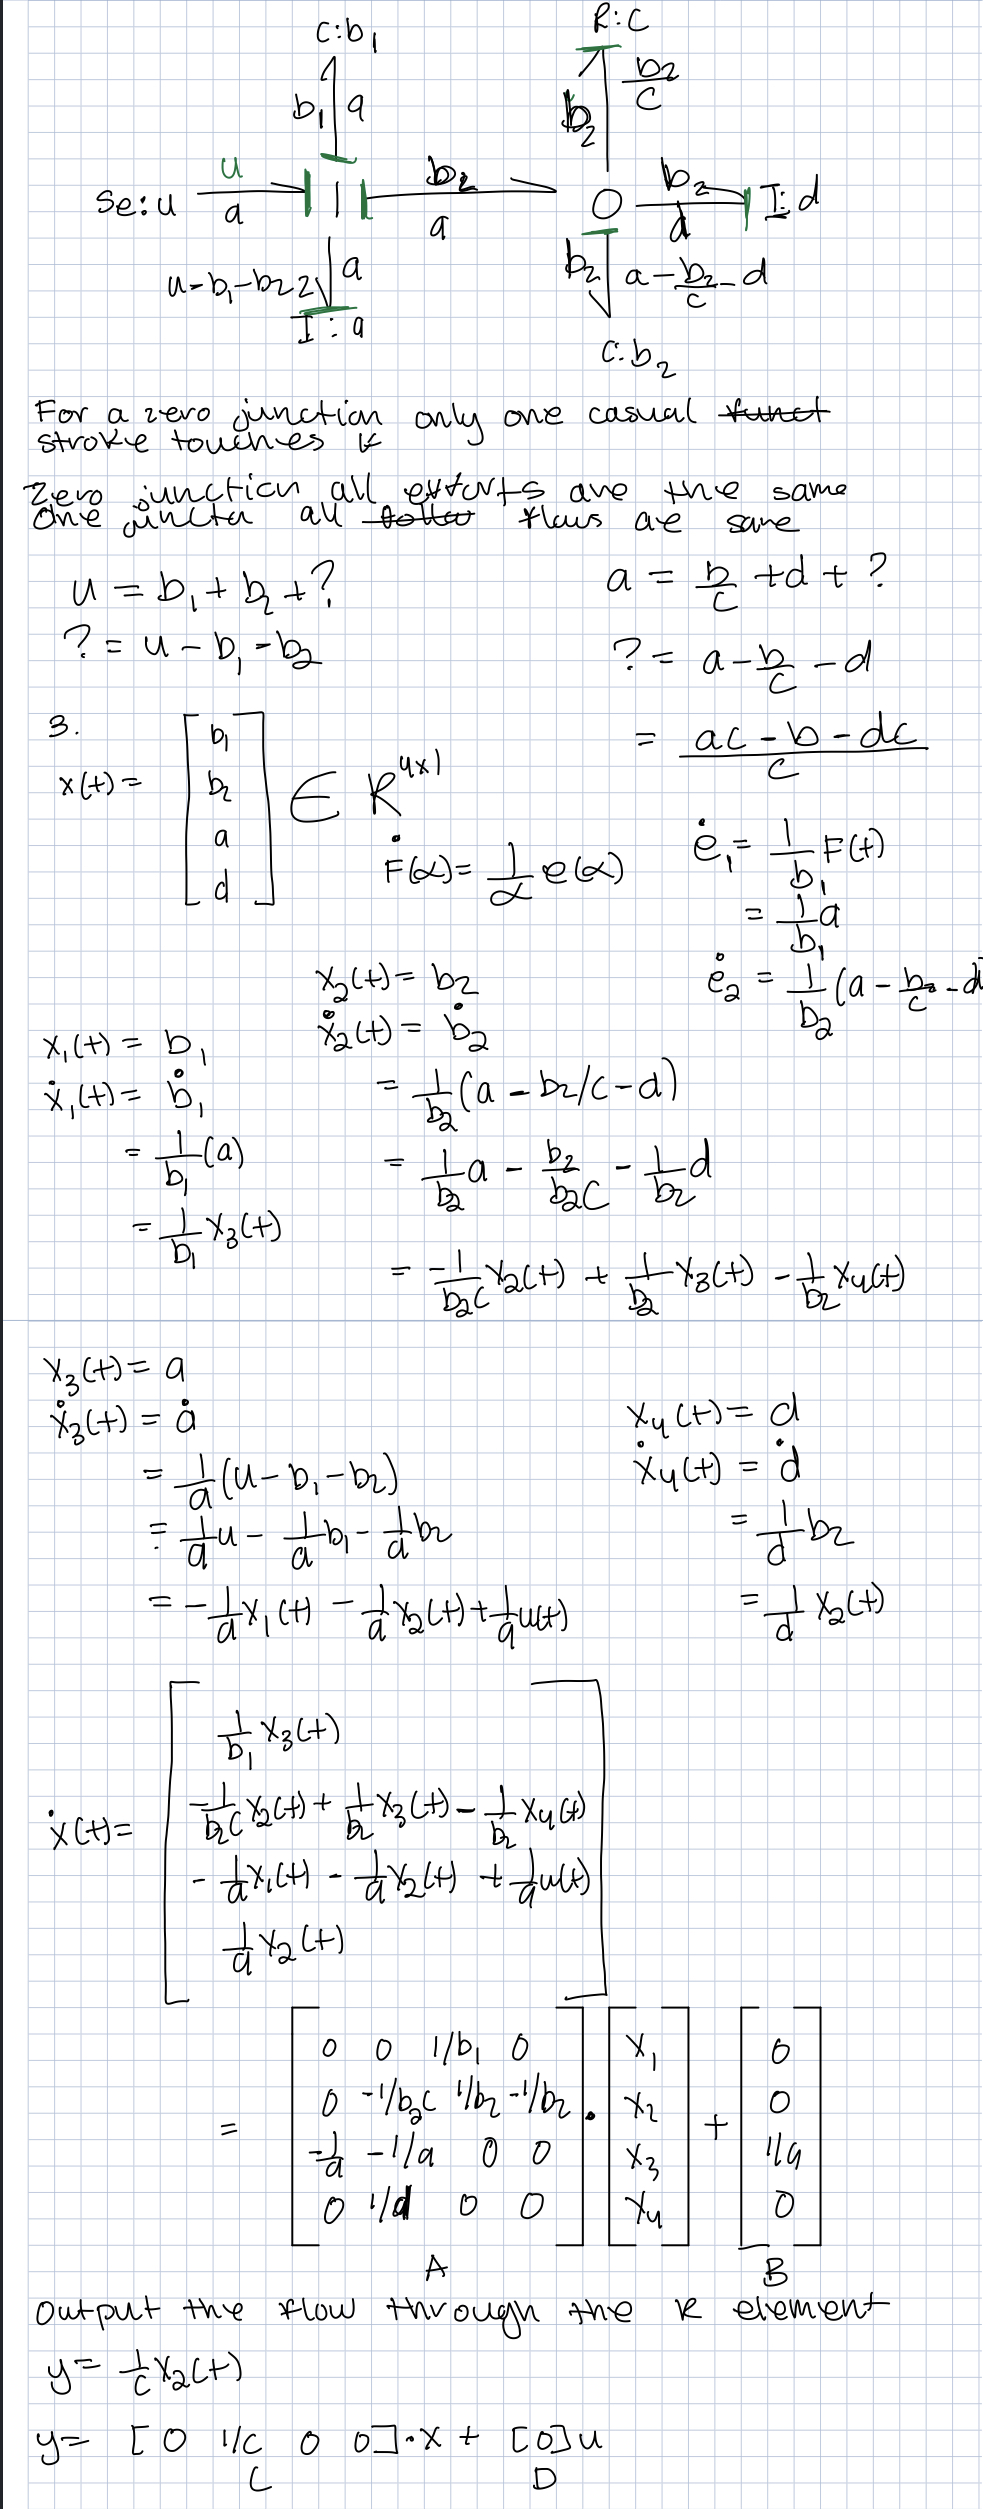 C:b₁
R:C
b₁ a
b₂ b₂/C
Se:u u a 1 b₂ a 0 b₂ d I:d
u-b₁-b₂ a
b₂ a-b₂/c-d
I:a
C:b₂
For a zero junction only one casual funct
stroke touches it
Zero junction all efforts are the same
One juncta all follow flows are same
u = b₁ + b₂ + ?
a = b/c + d + ?
? = u - b₁ - b₂
? = a - b/c - d
= (ac - b - dc)/c
3.
x(t) = [b₁ b₂ a d] ∈ R⁴ˣ¹
Ḟ(α) = 1/α e(α)
ė₁ = 1/b₁ F(t)
= 1/b₁ a
ė₂ = 1/b₂ (a - b₂/c - d
x₁(t) = b₁
ẋ₁(t) = ḃ₁
= 1/b₁ (a)
= 1/b₁ x₃(t)
x₂(t) = b₂
ẋ₂(t) = ḃ₂
= 1/b₂ (a - b₂/c - d)
= 1/b₂ a - b₂/b₂c - 1/b₂ d
= -1/b₂c x₂(t) + 1/b₂ x₃(t) - 1/b₂ x₄(t)
x₃(t) = a
ẋ₃(t) = ȧ
= 1/a (u - b₁ - b₂)
= 1/a u - 1/a b₁ - 1/a b₂
= -1/a x₁(t) - 1/a x₂(t) + 1/a u(t)
x₄(t) = d
ẋ₄(t) = ḋ
= 1/d b₂
= 1/d x₂(t)
ẋ(t) =
1/b₁ x₃(t)
-1/b₂c x₂(t) + 1/b₂ x₃(t) - 1/b₂ x₄(t)
- 1/a x₁(t) - 1/a x₂(t) + 1/a u(t)
1/a x₂(t)
=
0 0 1/b₁ 0 x₁ 0
0 -1/b₂c 1/b₂ -1/b₂ · x₂ + 0
-1/a -1/a 0 0 x₃ 1/a
0 1/d 0 0 x₄ 0
A B
Output the flow through the R element
y = 1/c x₂(t)
y = [0 1/c 0 0]·x + [0]u
C D